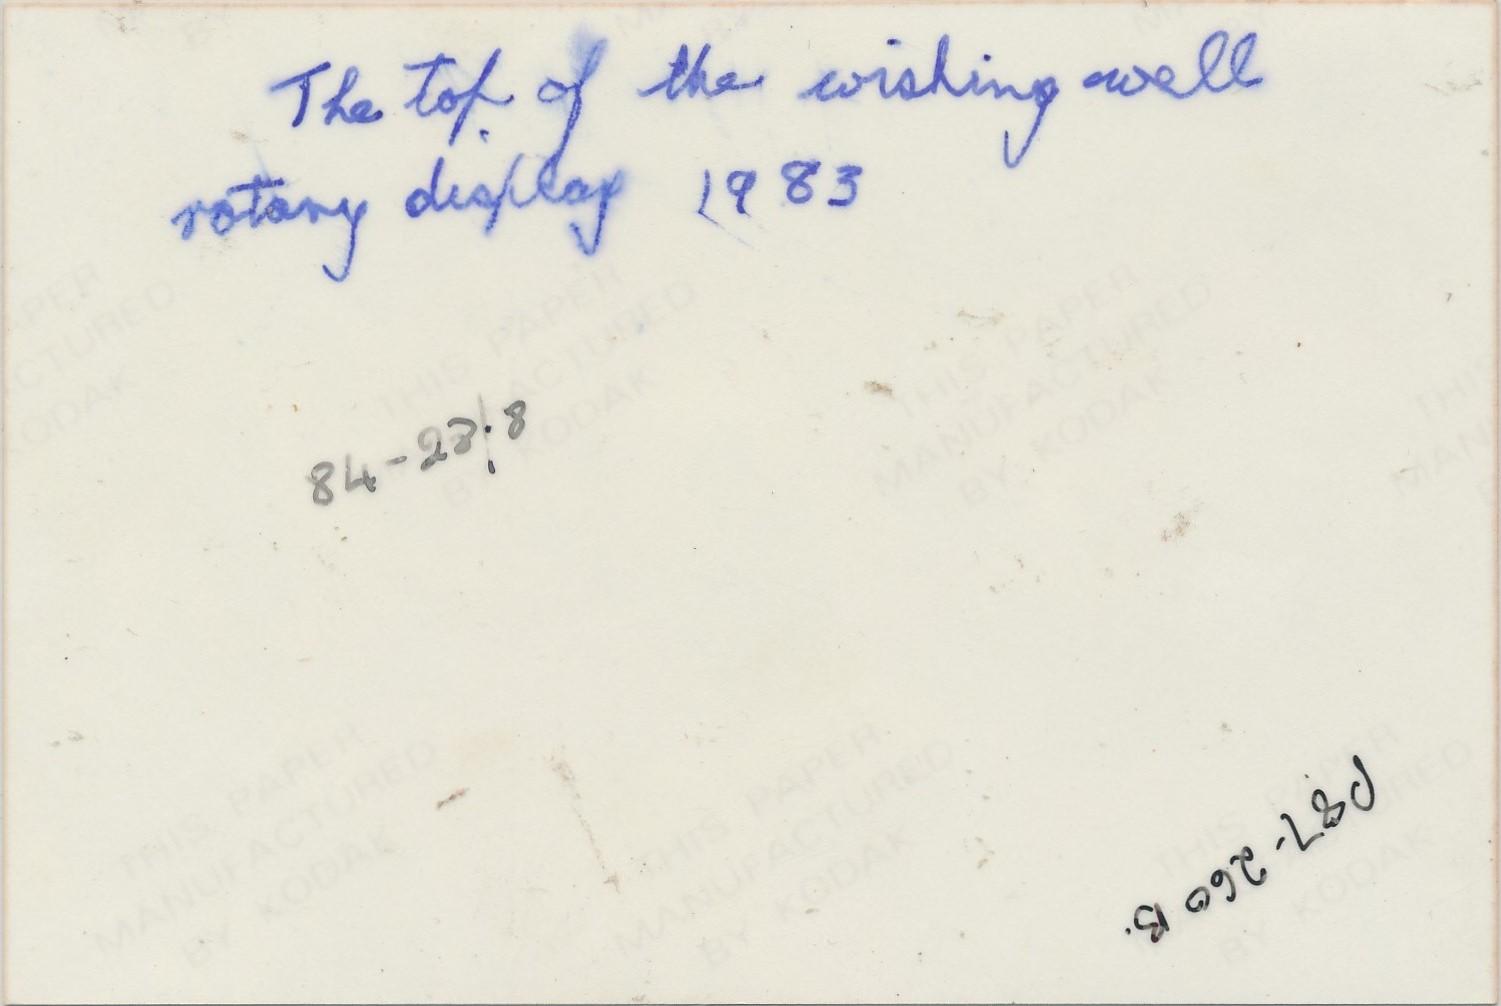 The top of the wishing well
rotary display 1983
THIS PAPER
MANUFACTURED
BY KODAK
84-23:8
P87-260B.